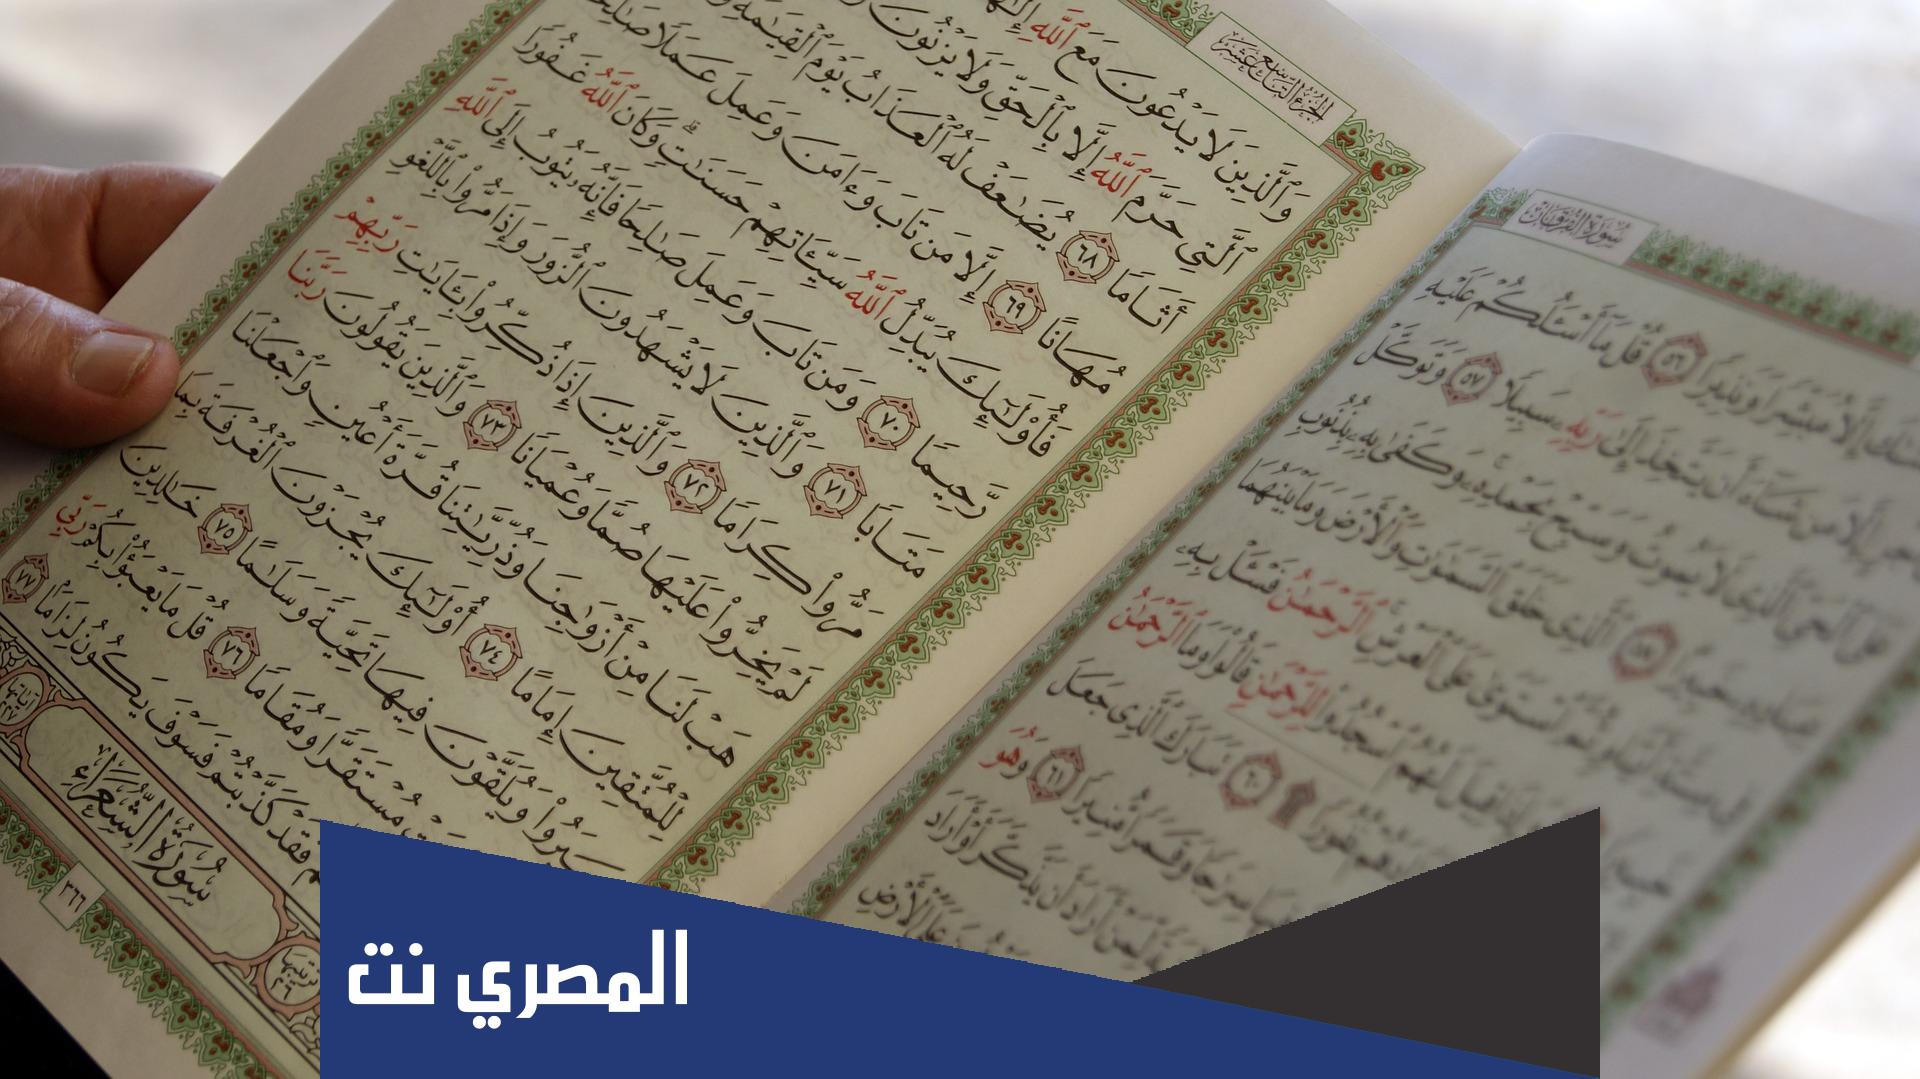 الجزء التاسع عشر
وَٱلَّذِينَ لَا يَدْعُونَ مَعَ ٱللَّهِ إِلَٰهًا
ٱلَّتِي حَرَّمَ ٱللَّهُ إِلَّا بِٱلْحَقِّ وَلَا يَزْنُونَ
أَثَامًا ٦٨ يُضَٰعَفْ لَهُ ٱلْعَذَابُ يَوْمَ ٱلْقِيَٰمَةِ
مُهَانًا ٦٩ إِلَّا مَن تَابَ وَءَامَنَ وَعَمِلَ عَمَلًا صَٰلِحًا
فَأُو۟لَٰٓئِكَ يُبَدِّلُ ٱللَّهُ سَيِّـَٔاتِهِمْ حَسَنَٰتٍ ۗ وَكَانَ ٱللَّهُ غَفُورًا
رَّحِيمًا ٧٠ وَمَن تَابَ وَعَمِلَ صَٰلِحًا فَإِنَّهُۥ يَتُوبُ إِلَى ٱللَّهِ
مَتَابًا ٧١ وَٱلَّذِينَ لَا يَشْهَدُونَ ٱلزُّورَ وَإِذَا مَرُّوا۟ بِٱللَّغْوِ
مَرُّوا۟ كِرَامًا ٧٢ وَٱلَّذِينَ إِذَا ذُكِّرُوا۟ بِـَٔايَٰتِ رَبِّهِمْ
لَمْ يَخِرُّوا۟ عَلَيْهَا صُمًّا وَعُمْيَانًا ٧٣ وَٱلَّذِينَ يَقُولُونَ رَبَّنَا
هَبْ لَنَا مِنْ أَزْوَٰجِنَا وَذُرِّيَّٰتِنَا قُرَّةَ أَعْيُنٍ وَٱجْعَلْنَا
لِلْمُتَّقِينَ إِمَامًا ٧٤ أُو۟لَٰٓئِكَ يُجْزَوْنَ ٱلْغُرْفَةَ بِمَا
صَبَرُوا۟ وَيُلَقَّوْنَ فِيهَا تَحِيَّةً وَسَلَٰمًا ٧٥ خَٰلِدِينَ
مُسْتَقَرًّا وَمُقَامًا ٧٦ قُلْ مَا يَعْبَؤُا۟ بِكُمْ رَبِّي
فَقَدْ كَذَّبْتُمْ فَسَوْفَ يَكُونُ لِزَامًۢا ٧٧
آياتها ٢٢٧
سُورَةُ الشُّعَرَاءِ
ترتيبها ٢٦
٣٦٦
سورة الفرقان
إِلَّا مُبَشِّرًا وَنَذِيرًا ٥٦ قُلْ مَآ أَسْـَٔلُكُمْ عَلَيْهِ
إِلَّا مَن شَآءَ أَن يَتَّخِذَ إِلَىٰ رَبِّهِۦ سَبِيلًا ٥٧ وَتَوَكَّلْ
عَلَى ٱلْحَىِّ ٱلَّذِى لَا يَمُوتُ وَسَبِّحْ بِحَمْدِهِۦ ۚ وَكَفَىٰ بِهِۦ بِذُنُوبِ
عِبَادِهِۦ خَبِيرًا ٥٨ ٱلَّذِى خَلَقَ ٱلسَّمَٰوَٰتِ وَٱلْأَرْضَ وَمَا بَيْنَهُمَا
ٱسْتَوَىٰ عَلَى ٱلْعَرْشِ ۚ ٱلرَّحْمَٰنُ فَسْـَٔلْ بِهِۦ
قِيلَ لَهُمُ ٱسْجُدُوا۟ لِلرَّحْمَٰنِ قَالُوا۟ وَمَا ٱلرَّحْمَٰنُ
نُفُورًا ٦٠ تَبَارَكَ ٱلَّذِى جَعَلَ
سِرَٰجًا وَقَمَرًا مُّنِيرًا ٦١ وَهُوَ
لِّمَنْ أَرَادَ أَن يَذَّكَّرَ أَوْ أَرَادَ
عَلَى ٱلْأَرْضِ
المصري نت